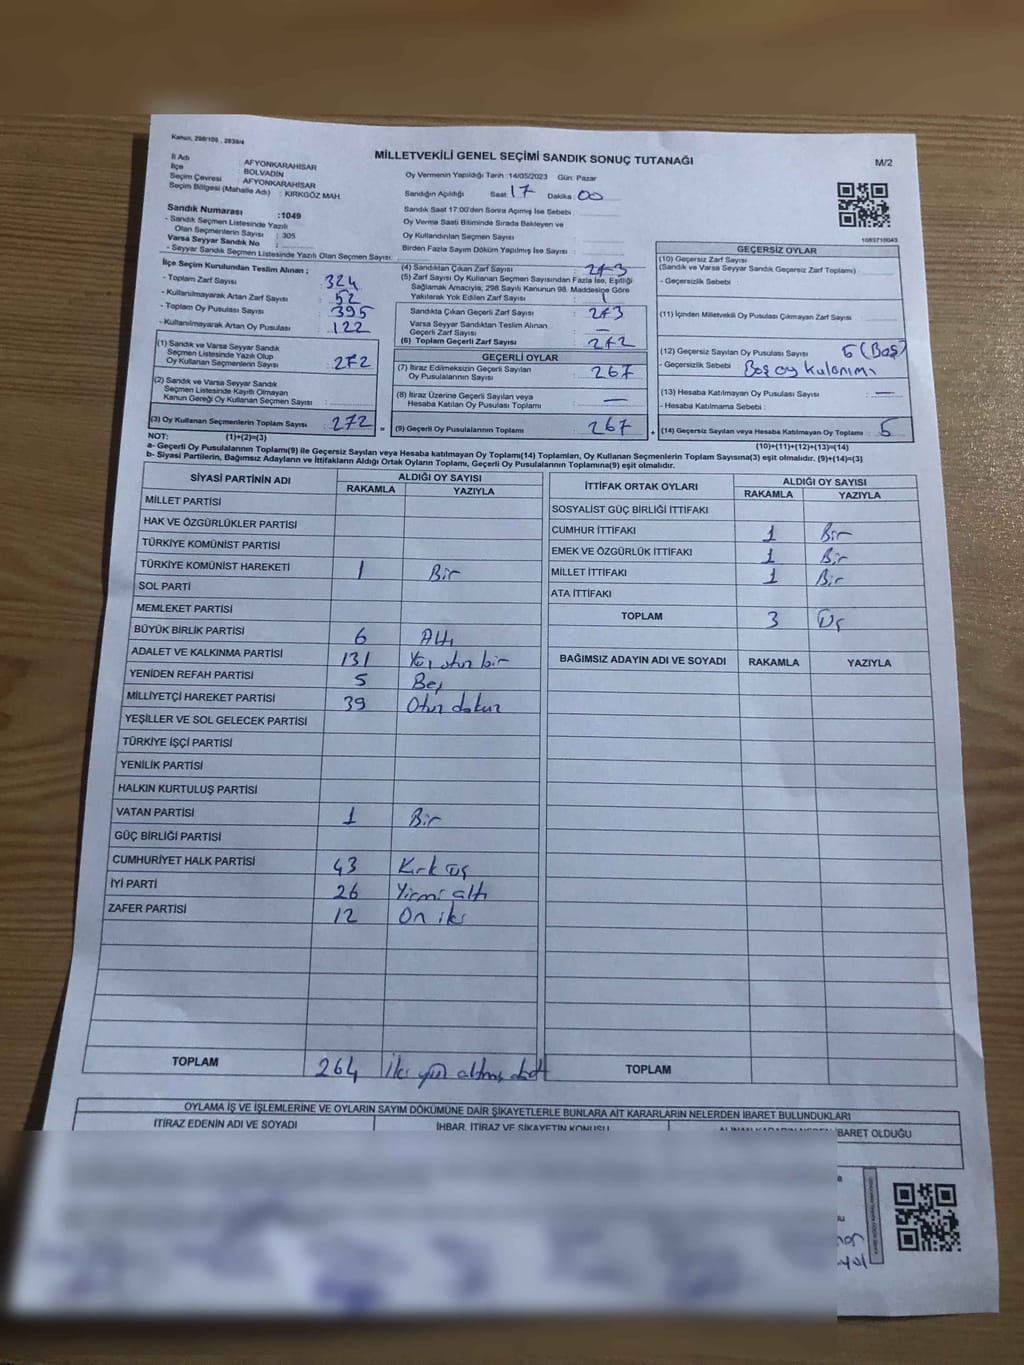 Kanun, 298/105 , 2839/4
MİLLETVEKİLİ GENEL SEÇİMİ SANDIK SONUÇ TUTANAĞI
M/2
İl Adı : AFYONKARAHİSAR
İlçe : BOLVADİN
Seçim Çevresi : AFYONKARAHİSAR
Seçim Bölgesi (Mahalle Adı) : KIRKGÖZ MAH.
Oy Vermenin Yapıldığı Tarih :14/05/2023 Gün: Pazar
Sandığın Açıldığı Saat 17 Dakika 00
Sandık Saat 17:00'den Sonra Açılmış İse Sebebi :
Oy Verme Saati Bitiminde Sırada Bekleyen ve
Oy Kullandırılan Seçmen Sayısı
Birden Fazla Sayım Döküm Yapılmış İse Sayısı :
Sandık Numarası :1049
- Sandık Seçmen Listesinde Yazılı
Olan Seçmenlerin Sayısı : 305
Varsa Seyyar Sandık No :
- Seyyar Sandık Seçmen Listesinde Yazılı Olan Seçmen Sayısı:
İlçe Seçim Kurulundan Teslim Alınan ;
- Toplam Zarf Sayısı : 324
- Kullanılmayarak Artan Zarf Sayısı : 52
- Toplam Oy Pusulası Sayısı : 395
- Kullanılmayarak Artan Oy Pusulası : 122
(1) Sandık ve Varsa Seyyar Sandık
Seçmen Listesinde Yazılı Olup
Oy Kullanan Seçmenlerin Sayısı : 272
(2) Sandık ve Varsa Seyyar Sandık
Seçmen Listesinde Kayıtlı Olmayan
Kanun Gereği Oy Kullanan Seçmen Sayısı :
(3) Oy Kullanan Seçmenlerin Toplam Sayısı : 272 =
(4) Sandıktan Çıkan Zarf Sayısı : 273
(5) Zarf Sayısı Oy Kullanan Seçmen Sayısından Fazla İse, Eşitliği
Sağlamak Amacıyla, 298 Sayılı Kanunun 98. Maddesine Göre
Yakılarak Yok Edilen Zarf Sayısı : 1
Sandıkta Çıkan Geçerli Zarf Sayısı : 273
Varsa Seyyar Sandıktan Teslim Alınan
Geçerli Zarf Sayısı : —
(6) Toplam Geçerli Zarf Sayısı : 272
GEÇERLİ OYLAR
(7) İtiraz Edilmeksizin Geçerli Sayılan
Oy Pusulalarının Sayısı : 267
(8) İtiraz Üzerine Geçerli Sayılan veya
Hesaba Katılan Oy Pusulası Toplamı : —
(9) Geçerli Oy Pusulalarının Toplamı : 267 +
1083710043
GEÇERSİZ OYLAR
(10) Geçersiz Zarf Sayısı
(Sandık ve Varsa Seyyar Sandık Geçersiz Zarf Toplamı) :
- Geçersizlik Sebebi :
(11) İçinden Milletvekili Oy Pusulası Çıkmayan Zarf Sayısı :
(12) Geçersiz Sayılan Oy Pusulası Sayısı : 5 (Boş)
- Geçersizlik Sebebi : Boş oy kulanımı
(13) Hesaba Katılmayan Oy Pusulası Sayısı : —
- Hesaba Katılmama Sebebi :
(14) Geçersiz Sayılan veya Hesaba Katılmayan Oy Toplamı : 5
NOT: (1)+(2)=(3) (10)+(11)+(12)+(13)=(14)
a- Geçerli Oy Pusulalarının Toplamı(9) ile Geçersiz Sayılan veya Hesaba katılmayan Oy Toplamı(14) Toplamları, Oy Kullanan Seçmenlerin Toplam Sayısına(3) eşit olmalıdır. (9)+(14)=(3)
b- Siyasi Partilerin, Bağımsız Adayların ve İttifakların Aldığı Ortak Oyların Toplamı, Geçerli Oy Pusulalarının Toplamına(9) eşit olmalıdır.
SİYASİ PARTİNİN ADI ALDIĞI OY SAYISI
RAKAMLA YAZIYLA
MİLLET PARTİSİ
HAK VE ÖZGÜRLÜKLER PARTİSİ
TÜRKİYE KOMÜNİST PARTİSİ
TÜRKİYE KOMÜNİST HAREKETİ 1 Bir
SOL PARTİ
MEMLEKET PARTİSİ
BÜYÜK BİRLİK PARTİSİ 6 Altı
ADALET VE KALKINMA PARTİSİ 131 Yüz otuz bir
YENİDEN REFAH PARTİSİ 5 Beş
MİLLİYETÇİ HAREKET PARTİSİ 39 Otuz dokuz
YEŞİLLER VE SOL GELECEK PARTİSİ
TÜRKİYE İŞÇİ PARTİSİ
YENİLİK PARTİSİ
HALKIN KURTULUŞ PARTİSİ
VATAN PARTİSİ 1 Bir
GÜÇ BİRLİĞİ PARTİSİ
CUMHURİYET HALK PARTİSİ 43 Kırk üç
İYİ PARTİ 26 Yirmi altı
ZAFER PARTİSİ 12 On iki
TOPLAM 264 İki yüz altmış dört
İTTİFAK ORTAK OYLARI ALDIĞI OY SAYISI
RAKAMLA YAZIYLA
SOSYALİST GÜÇ BİRLİĞİ İTTİFAKI
CUMHUR İTTİFAKI 1 Bir
EMEK VE ÖZGÜRLÜK İTTİFAKI 1 Bir
MİLLET İTTİFAKI 1 Bir
ATA İTTİFAKI
TOPLAM 3 Üç
BAĞIMSIZ ADAYIN ADI VE SOYADI RAKAMLA YAZIYLA
TOPLAM
OYLAMA İŞ VE İŞLEMLERİNE VE OYLARIN SAYIM DÖKÜMÜNE DAİR ŞİKAYETLERLE BUNLARA AİT KARARLARIN NELERDEN İBARET BULUNDUKLARI
İTİRAZ EDENİN ADI VE SOYADI İHBAR, İTİRAZ VE ŞİKAYETİN KONUSU İBARET OLDUĞU